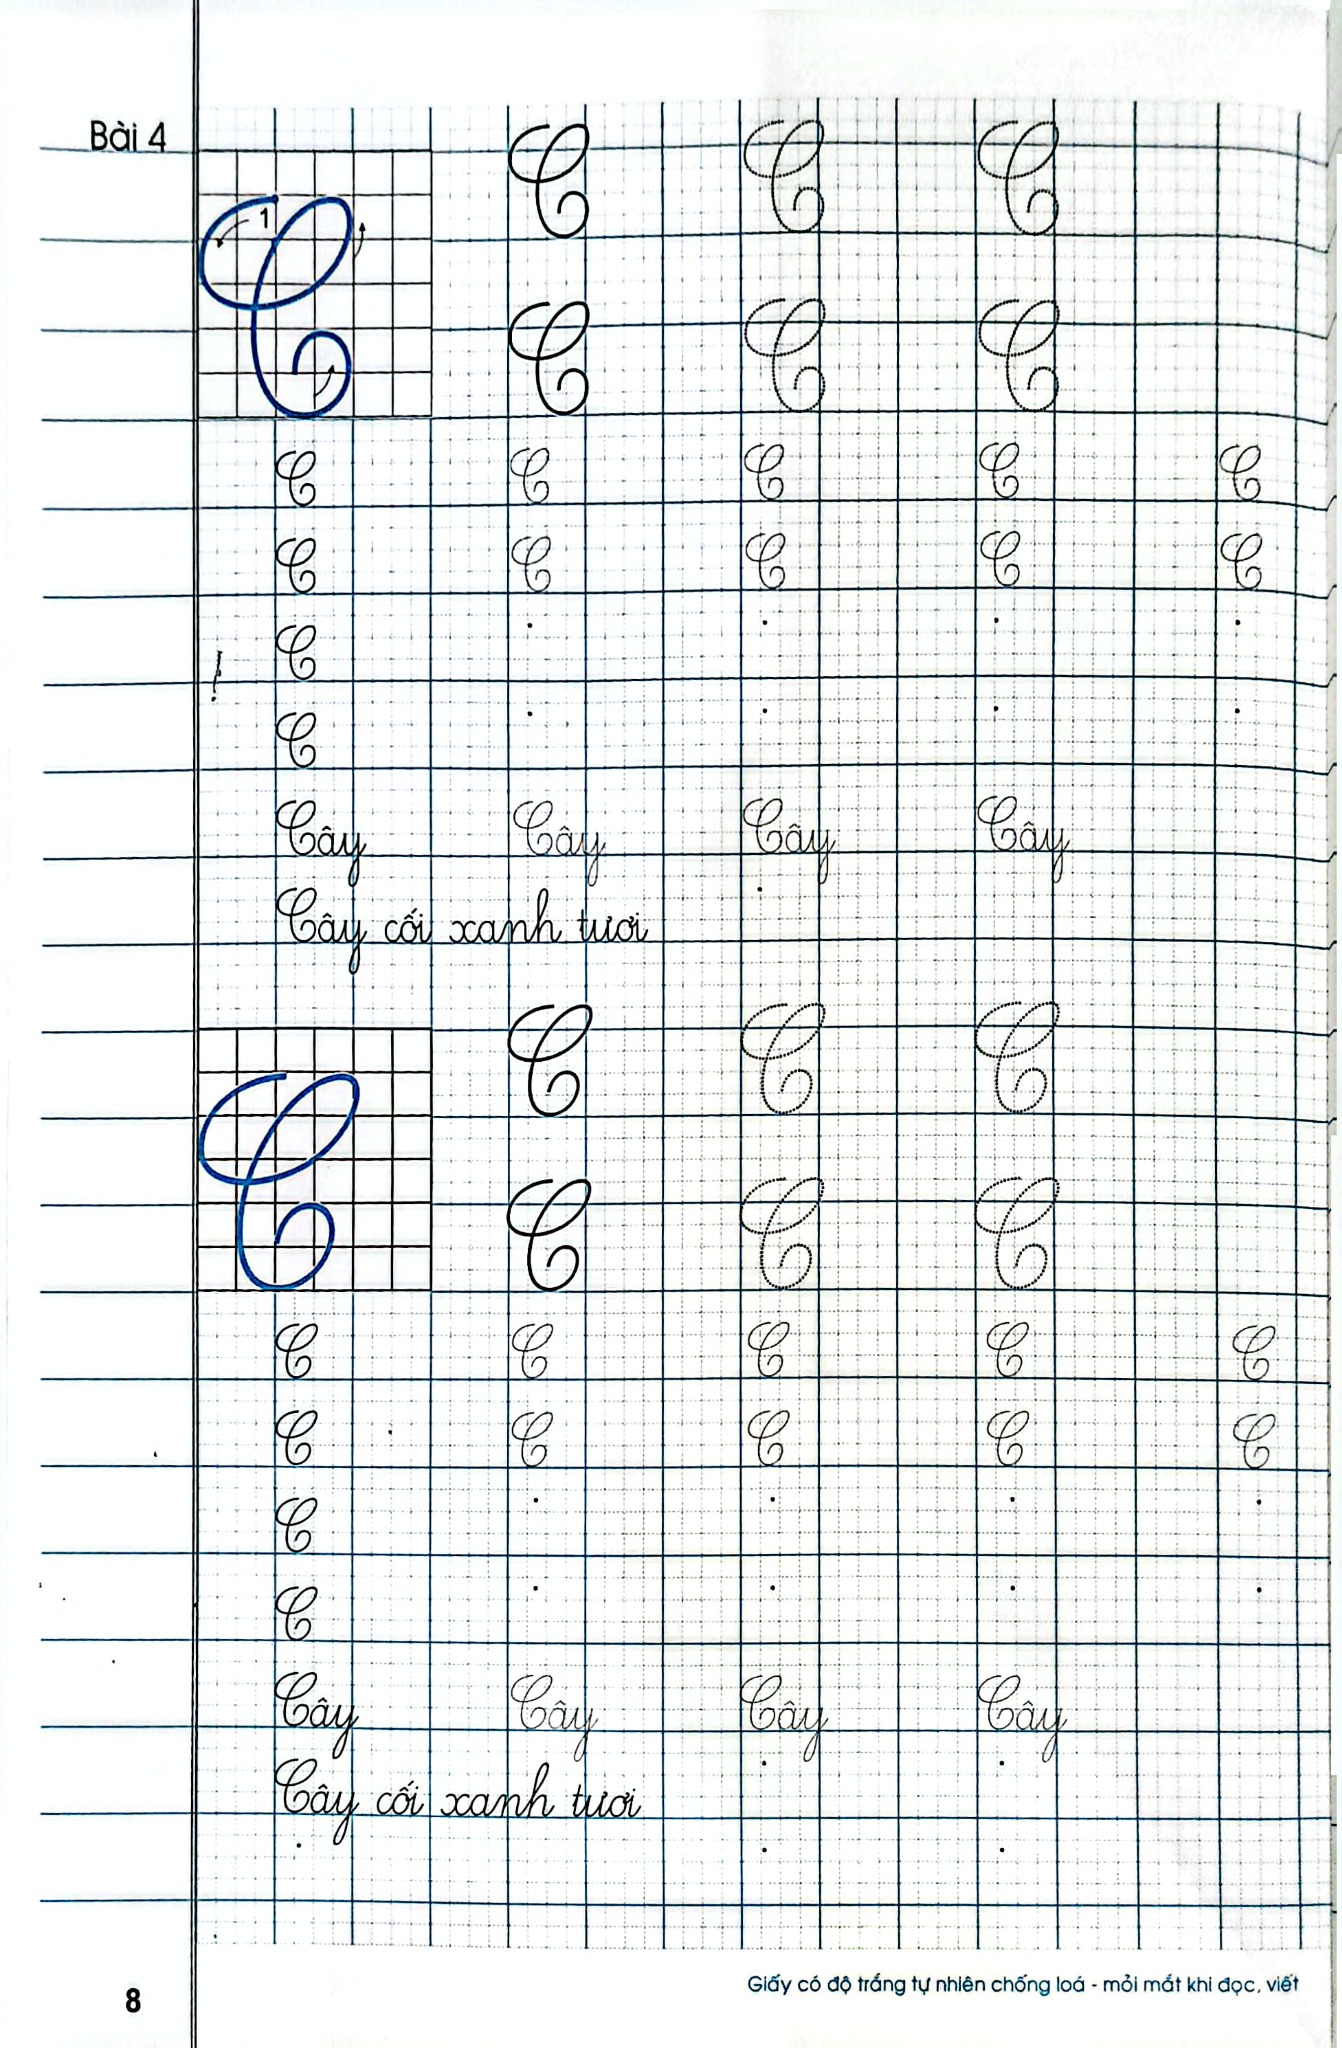 Bài 4
1
C C C
C C C
C C C C C
C C C C C
C
C
Cây Cây Cây Cây
Cây cối xanh tươi
C C C C
C C C
C C C C C
C C C C C
C
C
Cây Cây Cây Cây
Cây cối xanh tươi
8
Giấy có độ trắng tự nhiên chống loá - mỏi mắt khi đọc, viết